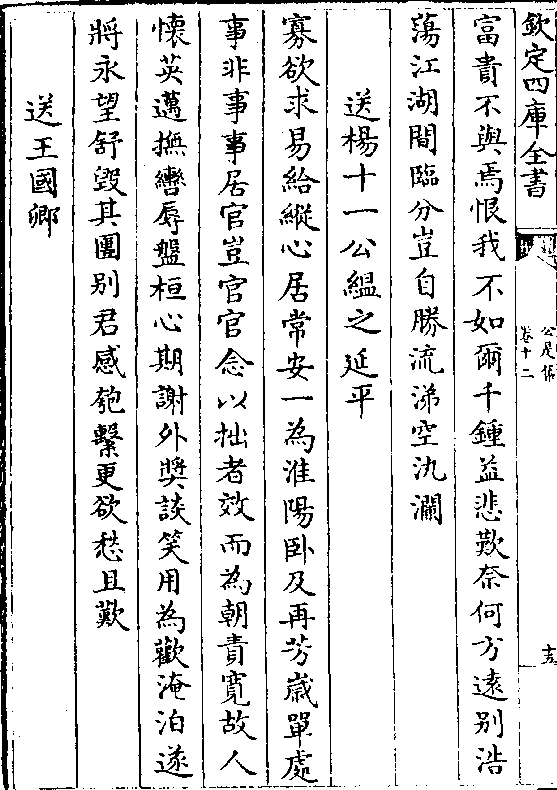 欽定四庫全書
公是集
卷十二
十五
富貴不與焉恨我不如爾千鍾益悲歎奈何方遠别浩
蕩江湖間臨分豈自勝流涕空汍瀾
送楊十一公緼之延平
寡欲求易給縱心居常安一為淮陽卧及再芳嵗單處
事非事事居官豈官官念以拙者效而為朝責寛故人
懷英邁撫轡辱盤桓心期謝外奬談笑用為歡淹泊遂
將永望舒毁其團别君感匏繫更欲愁且歎
送王國卿